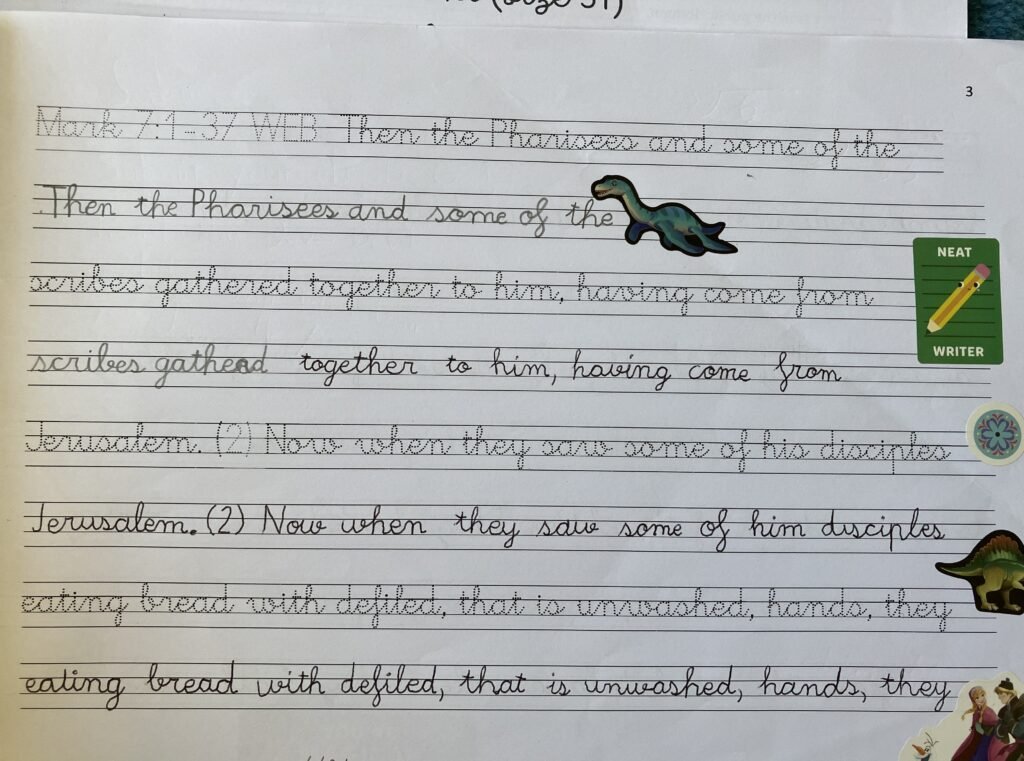 (size 51)
3
Mark 7:1-37 WEB Then the Pharisees and some of the
Then the Pharisees and some of the
scribes gathered together to him, having come from
NEAT
WRITER
scribes gathead together to him, having come from
Jerusalem. (2) Now when they saw some of his disciples
Jerusalem. (2) Now when they saw some of him disciples
eating bread with defiled, that is unwashed, hands, they
eating bread with defiled, that is unwashed, hands, they